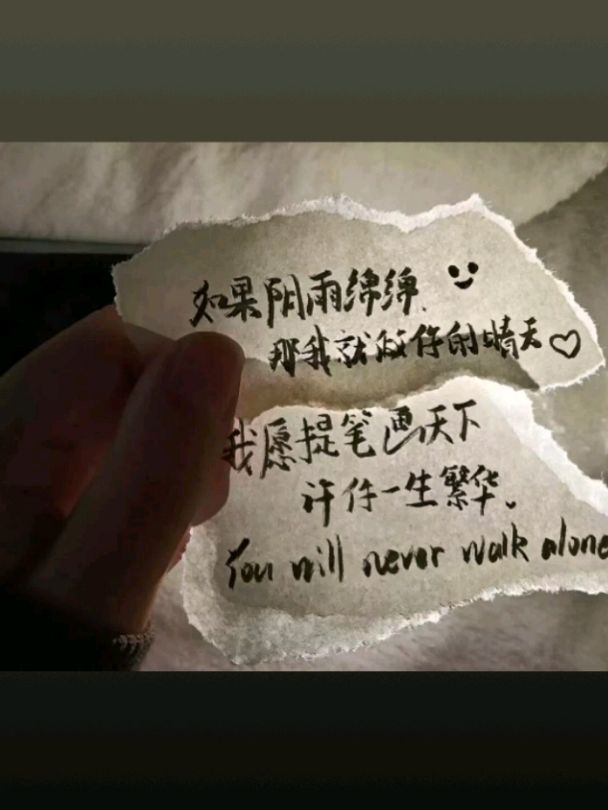 如果阴雨绵绵.
那我就做你的晴天
我愿提笔画天下
许你一生繁华.
You will never walk alone